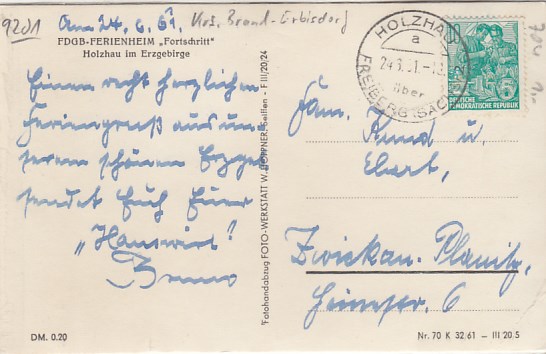 9201
Am 24. 6. 61. Krs. Brand-Erbisdorf
FDGB-FERIENHEIM „Fortschritt"
Holzhau im Erzgebirge
Einen recht herzlichen
Feriengruß aus un-
serem schönen Erzgeb.
sendet Euch Euer
„Hauswirt"
Bruno
DM. 0.20
Fotohandabzug FOTO-WERKSTATT W. HÖPPNER, Seiffen - F III/20/24
HOLZHAU
a
über
FREIBERG (SACHS)
10
DEUTSCHE
DEMOKRATISCHE REPUBLIK
Fam.
Kund u.
Ebert,
Zwickau-Planitz,
6
Nr. 70 K 32/61 — III 20,5